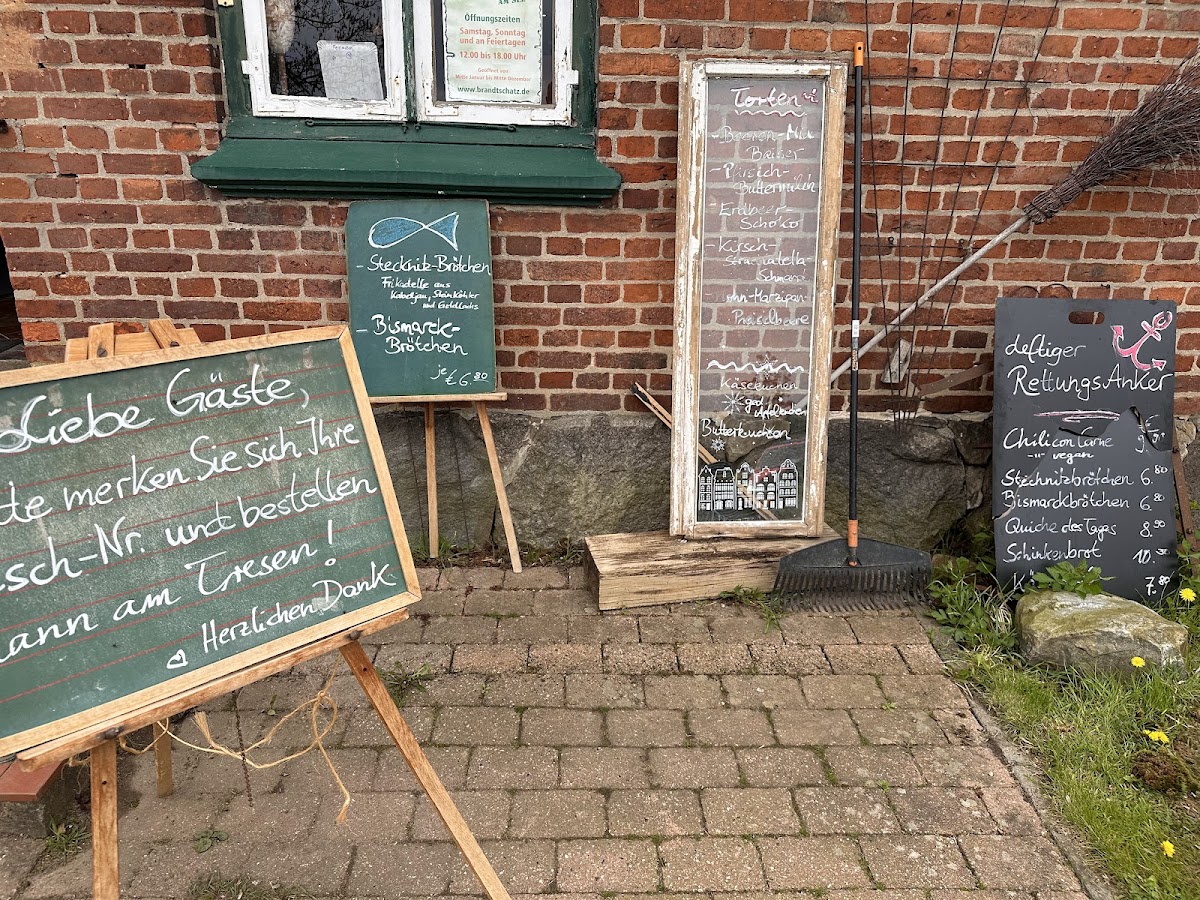 Öffnungszeiten
Samstag, Sonntag
und an Feiertagen
12.00 bis 18.00 Uhr
Geöffnet von
Mitte Januar bis Mitte Dezember
www.brandtschatz.de
Liebe Gäste,
merken Sie sich Ihre
sch-Nr. und bestellen
ann am Tresen!
Herzlichen Dank
- Stecknitz-Brötchen
Frikadelle aus
Kabeljau, Steinköhler
und Goldlachs
- Bismarck-
Brötchen
je € 6.80
Torten
- Beeren-
Baiser
- Pfirsich-
Buttermilch
- Erdbeer-
Schoko
- Kirsch-
Stracciatella
Schmand
Mohn-Marzipan
Preiselbeere
Käsekuchen
Butterkuchen
deftiger
RettungsAnker
€
Chili con Carne 9.
-"- vegan
Stecknitzbrötchen 6.80
Bismarckbrötchen 6.80
Quiche des Tages 8.90
Schinkenbrot 10.50
7.80